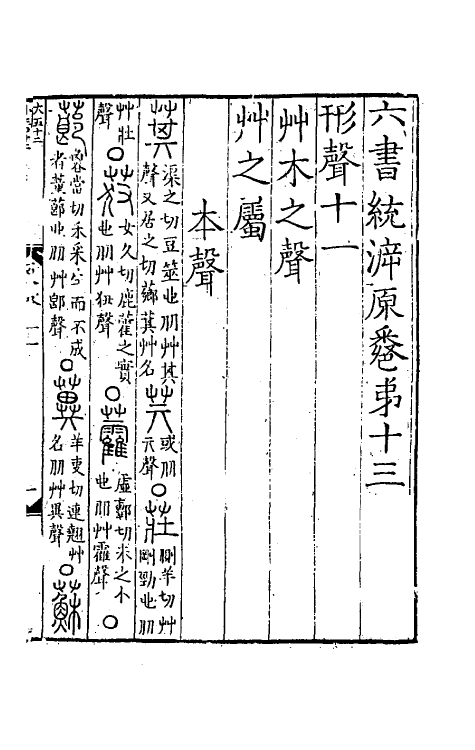 六書統溯原卷弟十三
形聲十一
艸木之聲
艸之屬
本聲
萁渠之切豆莖也从艸其聲又居之切薌萁艸名𦬊或从亓聲○莊側羊切艸
剛勁也从艸壯聲○䒜女久切鹿藿之實也从艸狃聲○藿虛郭切尗之小也从艸霍聲○
蓈當切禾采之而不成者董蓈也从艸郎聲○𦿉羊吏切連翹艸名从艸異聲○蘇